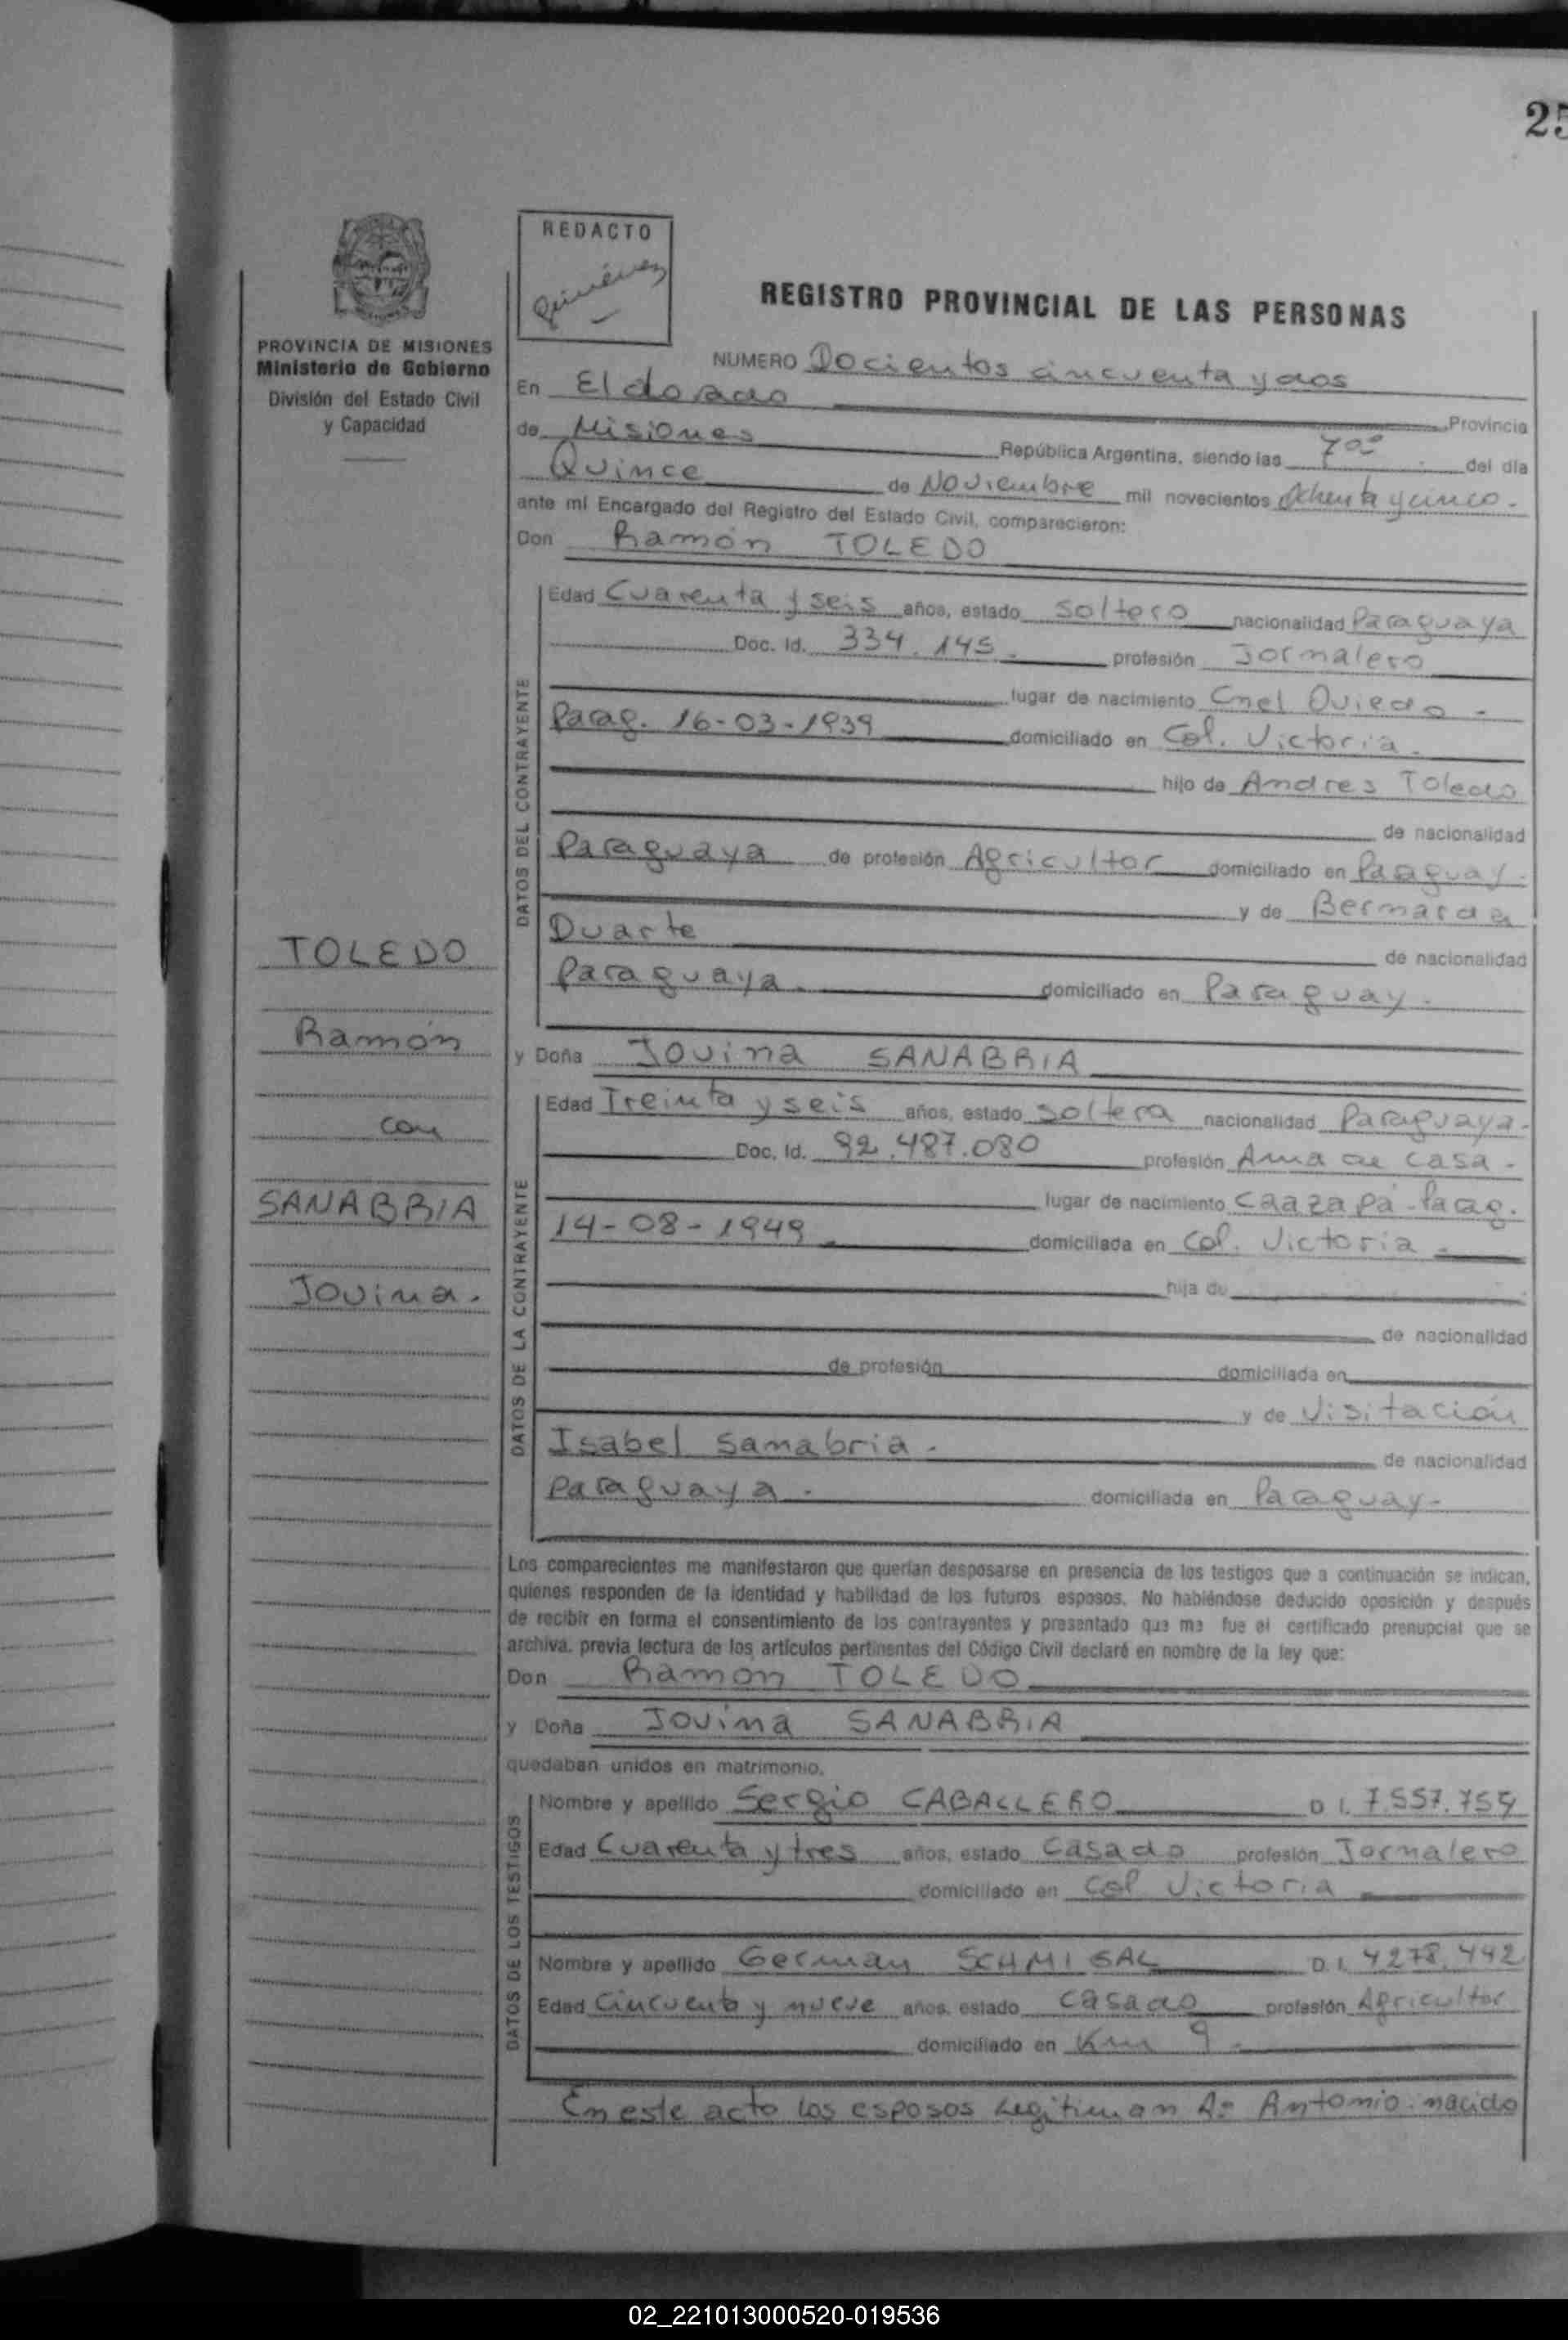 25
REDACTO
Giménez
REGISTRO PROVINCIAL DE LAS PERSONAS
PROVINCIA DE MISIONES
Ministerio de Gobierno
División del Estado Civil
y Capacidad
NUMERO Docientos cincuenta y dos
En Eldorado Provincia
de Misiones República Argentina, siendo las 7oo del día
Quince de Noviembre mil novecientos Ochenta y cinco.
ante mí Encargado del Registro del Estado Civil, comparecieron:
Don Ramón TOLEDO
DATOS DEL CONTRAYENTE
Edad Cuarenta y seis años, estado soltero nacionalidad Paraguaya
Doc. Id. 334.145. profesión Jornalero
lugar de nacimiento Cnel Oviedo -
Parag. 16-03-1939 domiciliado en Col. Victoria.
hijo de Andres Toledo
de nacionalidad
Paraguaya de profesión Agricultor domiciliado en Paraguay.
y de Bernarda
Duarte de nacionalidad
Paraguaya. domiciliado en Paraguay.
y Doña Jovina SANABRIA
DATOS DE LA CONTRAYENTE
Edad Treinta y seis años, estado soltera nacionalidad Paraguaya-
Doc. Id. 92.487.080 profesión Ama de casa -
lugar de nacimiento Caazapá - Parag.
14-08-1949 domiciliada en Col. Victoria.
hija de
de nacionalidad
de profesión domiciliada en
y de Visitación
Isabel Sanabria. de nacionalidad
Paraguaya. domiciliada en Paraguay-
TOLEDO
Ramón
con
SANABRIA
Jovina.
Los comparecientes me manifestaron que querían desposarse en presencia de los testigos que a continuación se indican,
quienes responden de la identidad y habilidad de los futuros esposos. No habiéndose deducido oposición y después
de recibir en forma el consentimiento de los contrayentes y presentado que me fue el certificado prenupcial que se
archiva. previa lectura de los artículos pertinentes del Código Civil declaré en nombre de la ley que:
Don Ramón TOLEDO
y Doña Jovina SANABRIA
quedaban unidos en matrimonio.
DATOS DE LOS TESTIGOS
Nombre y apellido Sergio CABALLERO D I. 7.557.759
Edad Cuarenta y tres años, estado Casado profesión Jornalero
domiciliado en Col Victoria
Nombre y apellido German SCHMIGAL D. I. 4278.442
Edad Cincuenta y nueve años, estado Casado profesión Agricultor
domiciliado en Km 9.
En este acto los esposos Legitiman A: Antonio: nacido
02_221013000520-019536